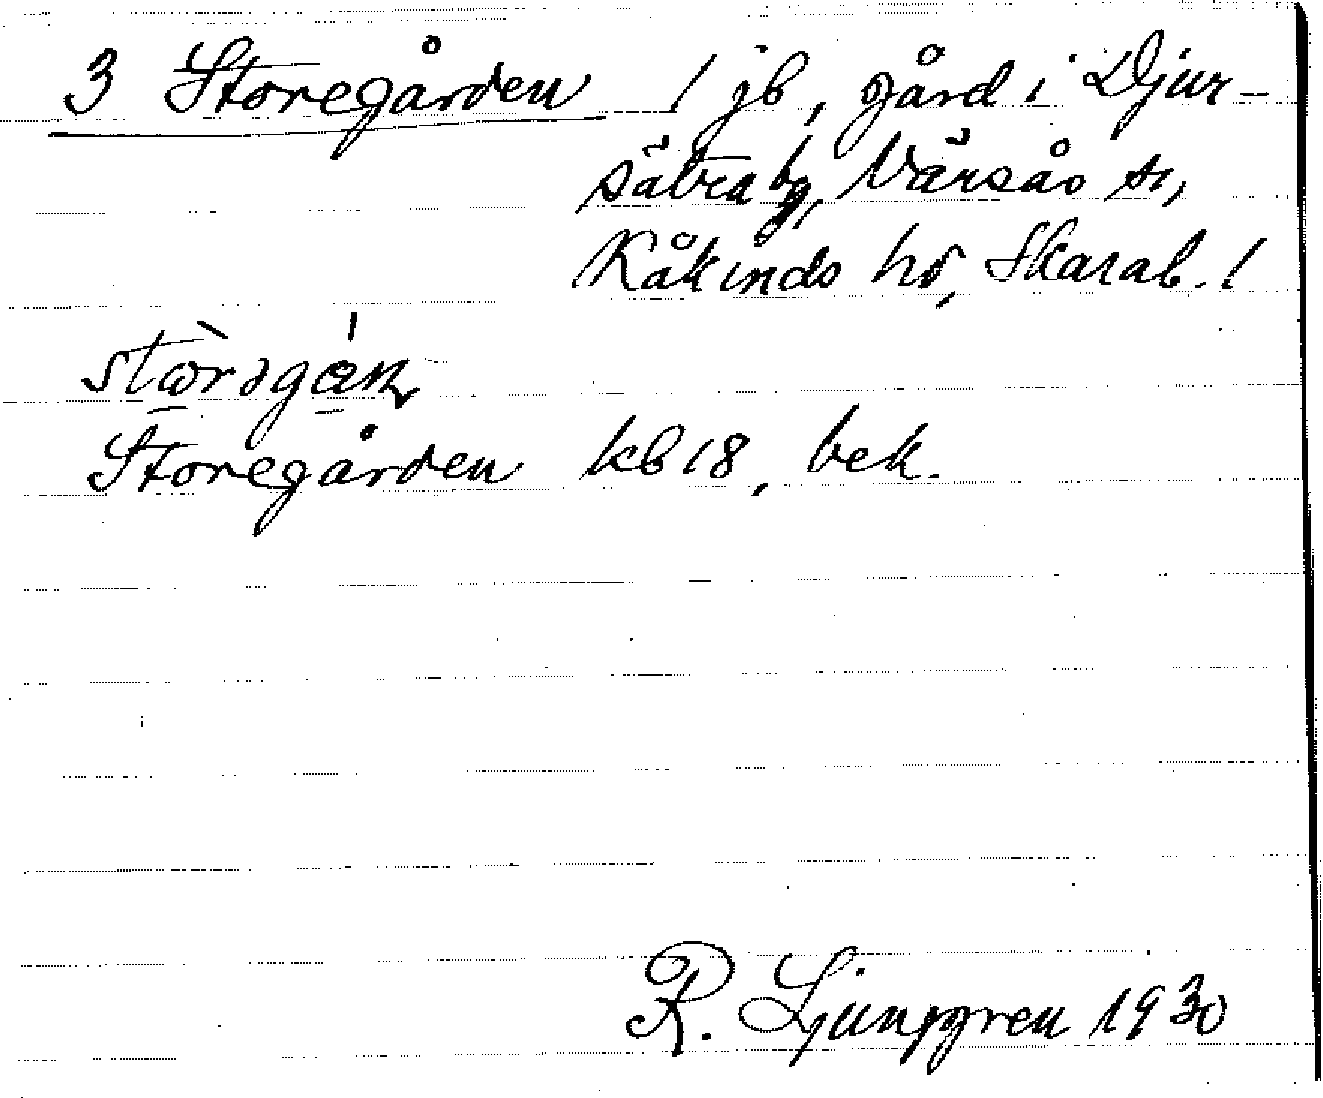 3 Storegården / jb, gård i Djur-
sätra by, Värsås sn,
Kåkinds hd, Skarab. /
Storegården kb 18, bek.
R. Ljunggren 1930